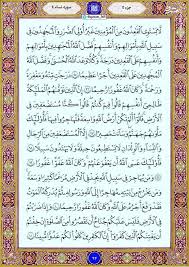 جزء ٥
سورة نساء ٤
لَّا يَسْتَوِى ٱلْقَٰعِدُونَ مِنَ ٱلْمُؤْمِنِينَ غَيْرُ أُو۟لِى ٱلضَّرَرِ وَٱلْمُجَٰهِدُونَ
فِى سَبِيلِ ٱللَّهِ بِأَمْوَٰلِهِمْ وَأَنفُسِهِمْ فَضَّلَ ٱللَّهُ ٱلْمُجَٰهِدِينَ
بِأَمْوَٰلِهِمْ وَأَنفُسِهِمْ عَلَى ٱلْقَٰعِدِينَ دَرَجَةً وَكُلًّا وَعَدَ ٱللَّهُ
ٱلْحُسْنَىٰ وَفَضَّلَ ٱللَّهُ ٱلْمُجَٰهِدِينَ عَلَى ٱلْقَٰعِدِينَ أَجْرًا عَظِيمًا
دَرَجَٰتٍ مِّنْهُ وَمَغْفِرَةً وَرَحْمَةً وَكَانَ ٱللَّهُ غَفُورًا رَّحِيمًا
إِنَّ ٱلَّذِينَ تَوَفَّىٰهُمُ ٱلْمَلَٰٓئِكَةُ ظَالِمِىٓ أَنفُسِهِمْ قَالُوا۟ فِيمَ كُنتُمْ
قَالُوا۟ كُنَّا مُسْتَضْعَفِينَ فِى ٱلْأَرْضِ قَالُوٓا۟ أَلَمْ تَكُنْ أَرْضُ ٱللَّهِ وَٰسِعَةً فَتُهَاجِرُوا۟ فِيهَا
فَأُو۟لَٰٓئِكَ مَأْوَىٰهُمْ جَهَنَّمُ وَسَآءَتْ مَصِيرًا إِلَّا ٱلْمُسْتَضْعَفِينَ
مِنَ ٱلرِّجَالِ وَٱلنِّسَآءِ وَٱلْوِلْدَٰنِ لَا يَسْتَطِيعُونَ حِيلَةً وَلَا يَهْتَدُونَ سَبِيلًا
فَأُو۟لَٰٓئِكَ عَسَى ٱللَّهُ أَن يَعْفُوَ عَنْهُمْ وَكَانَ ٱللَّهُ عَفُوًّا غَفُورًا
وَمَن يُهَاجِرْ فِى سَبِيلِ ٱللَّهِ يَجِدْ فِى ٱلْأَرْضِ مُرَٰغَمًا كَثِيرًا وَسَعَةً
وَمَن يَخْرُجْ مِنۢ بَيْتِهِۦ مُهَاجِرًا إِلَى ٱللَّهِ وَرَسُولِهِۦ ثُمَّ يُدْرِكْهُ ٱلْمَوْتُ
فَقَدْ وَقَعَ أَجْرُهُۥ عَلَى ٱللَّهِ وَكَانَ ٱللَّهُ غَفُورًا رَّحِيمًا وَإِذَا ضَرَبْتُمْ
فِى ٱلْأَرْضِ فَلَيْسَ عَلَيْكُمْ جُنَاحٌ أَن تَقْصُرُوا۟ مِنَ ٱلصَّلَوٰةِ إِنْ خِفْتُمْ
أَن يَفْتِنَكُمُ ٱلَّذِينَ كَفَرُوٓا۟ إِنَّ ٱلْكَٰفِرِينَ كَانُوا۟ لَكُمْ عَدُوًّا مُّبِينًا